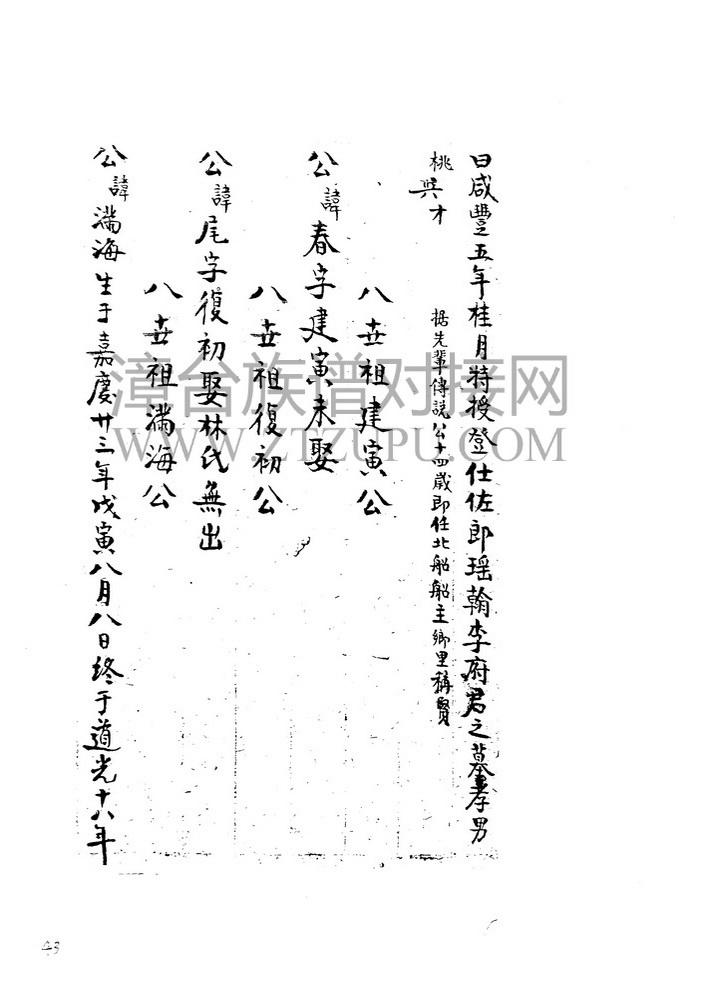 曰咸豐五年桂月特授登仕佐郎瑶翰李府君之墓孝男
桃興才
据先輩傳説公十四歲即任北船船主鄉里稱賢
八世祖建寅公
公諱春字建寅未娶
八世祖復初公
公諱尾字復初娶林氏無出
八世祖滿海公
公諱滿海生于嘉慶廿三年戊寅八月八日終于道光十八年
漳台族普对接网
WWW.ZTZUPU.COM
43